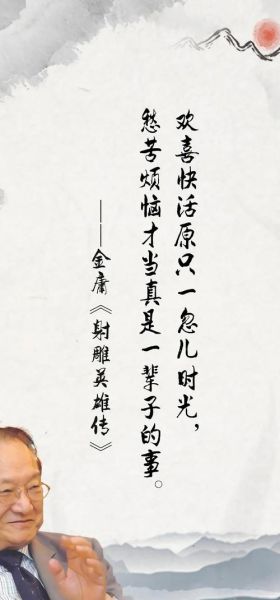 欢喜快活原只一忽儿时光，
愁苦烦恼才当真是一辈子的事。
——金庸《射雕英雄传》